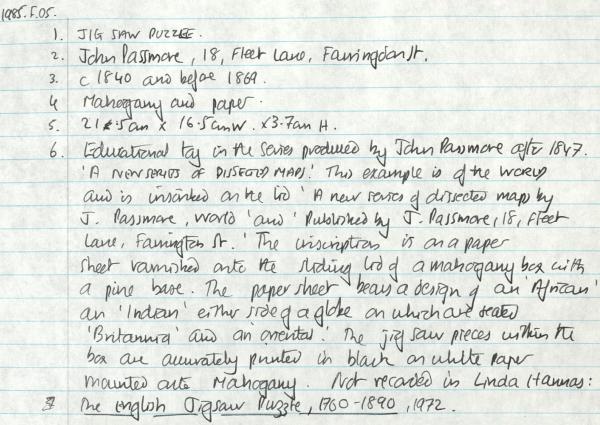 1985.F.05.
1. JIG SAW PUZZLE.
2. John Passmore, 18, Fleet Lane, Farringdon St.
3. c 1840 and before 1869.
4 Mahogany and paper.
5. 21.5cm x 16.5cm W. x 3.7cm H.
6. Educational toy in the series produced by John Passmore after 1847.
'A NEW SERIES OF DISSECTED MAPS.' This example is of the WORLD
and is inscribed on the lid 'A new series of dissected maps by
J. Passmore, World' and 'Published by J. Passmore, 18, Fleet
Lane, Farrington St.' The inscription is on a paper
sheet varnished onto the sliding lid of a mahogany box with
a pine base. The paper sheet bears a design of an 'African'
an 'Indian' either side of a globe on which are seated
'Britannia' and an 'oriental'. The jig saw pieces within the
box are accurately printed in black on white paper
mounted onto Mahogany. Not recorded in Linda Hannas:
The English Jigsaw Puzzle, 1760-1890, 1972.